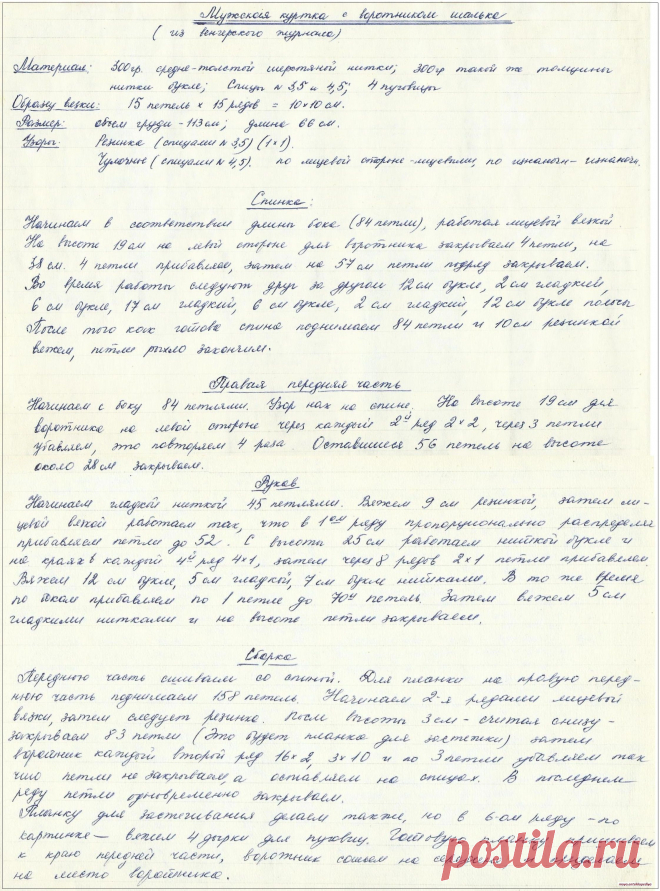 Мужская куртка с воротником шалька
(из венгерского журнала)
Материал: 300гр. средне-толстой шерстяной нитки; 300гр такой же толщины
нитки букле; Спицы N 3,5 и 4,5; 4 пуговицы
Образец вязки: 15 петель × 15 рядов = 10×10 см.
Размер: объем груди - 113 см; длина 66 см.
Узоры: Резинка (спицами N 3,5) (1×1).
Чулочное (спицами N 4,5). по лицевой стороне - лицевыми, по изнаночн - изнаночн.
Спинка:
Начинаем в соответствии длины бока (84 петли), работая лицевой вязкой
На высоте 19 см на левой стороне для воротника закрываем 4 петли, на
38 см. 4 петли прибавляем, затем на 57 см петли подряд закрываем.
Во время работы следуют друг за другом 12 см букле, 2 см гладкий,
6 см букле, 17 см гладкий, 6 см букле, 2 см гладкий, 12 см букле полосы
После того как готова спина поднимаем 84 петли и 10 см резинкой
вяжем, петли рыхло закончим.
Правая передняя часть
Начинаем с боку 84 петлями. Узор как на спине. На высоте 19 см для
воротника на левой стороне через каждый 2й ряд 2×2, через 3 петли
убавляем, это повторяем 4 раза Оставшиеся 56 петель на высоте
около 28 см закрываем.
Рукав
Начинаем гладкой ниткой 45 петлями. Вяжем 9 см резинкой, затем ли-
цевой вязкой работаем так, что в 1ом ряду пропорционально распределяя
прибавляем петли до 52. С высоты 25 см работаем ниткой букле и
на краях в каждый 4й ряд 4×1, затем через 8 рядов 2×1 петли прибавляем.
Вяжем 12 см букле, 5 см гладкий, 7 см букле нитками. В то же время
по бокам прибавляем по 1 петле до 70и петель. Затем вяжем 5 см
гладкими нитками и на высоте петли закрываем.
Сборка
Переднюю часть сшиваем со спиной. Для планки на правую перед-
нюю часть поднимаем 158 петель. Начинаем 2-я рядами лицевый
вязки, затем следует резинка. После высоты 3 см - считая снизу -
закрываем 83 петли (Это будет планка для застежки) затем
воротник каждый второй ряд 16×2, 3×10 и по 3 петли убавляем так
что петли не закрываем, а оставляем на спицах. В последнем
ряду петли одновременно закрываем.
Планку для застегивания делаем также, но в 6-ом ряду - по
картинке - вяжем 4 дырки для пуговиц. Готовую планку пришиваем
к краю передней части, воротник сошьем на
на место воротника.
postila.ru